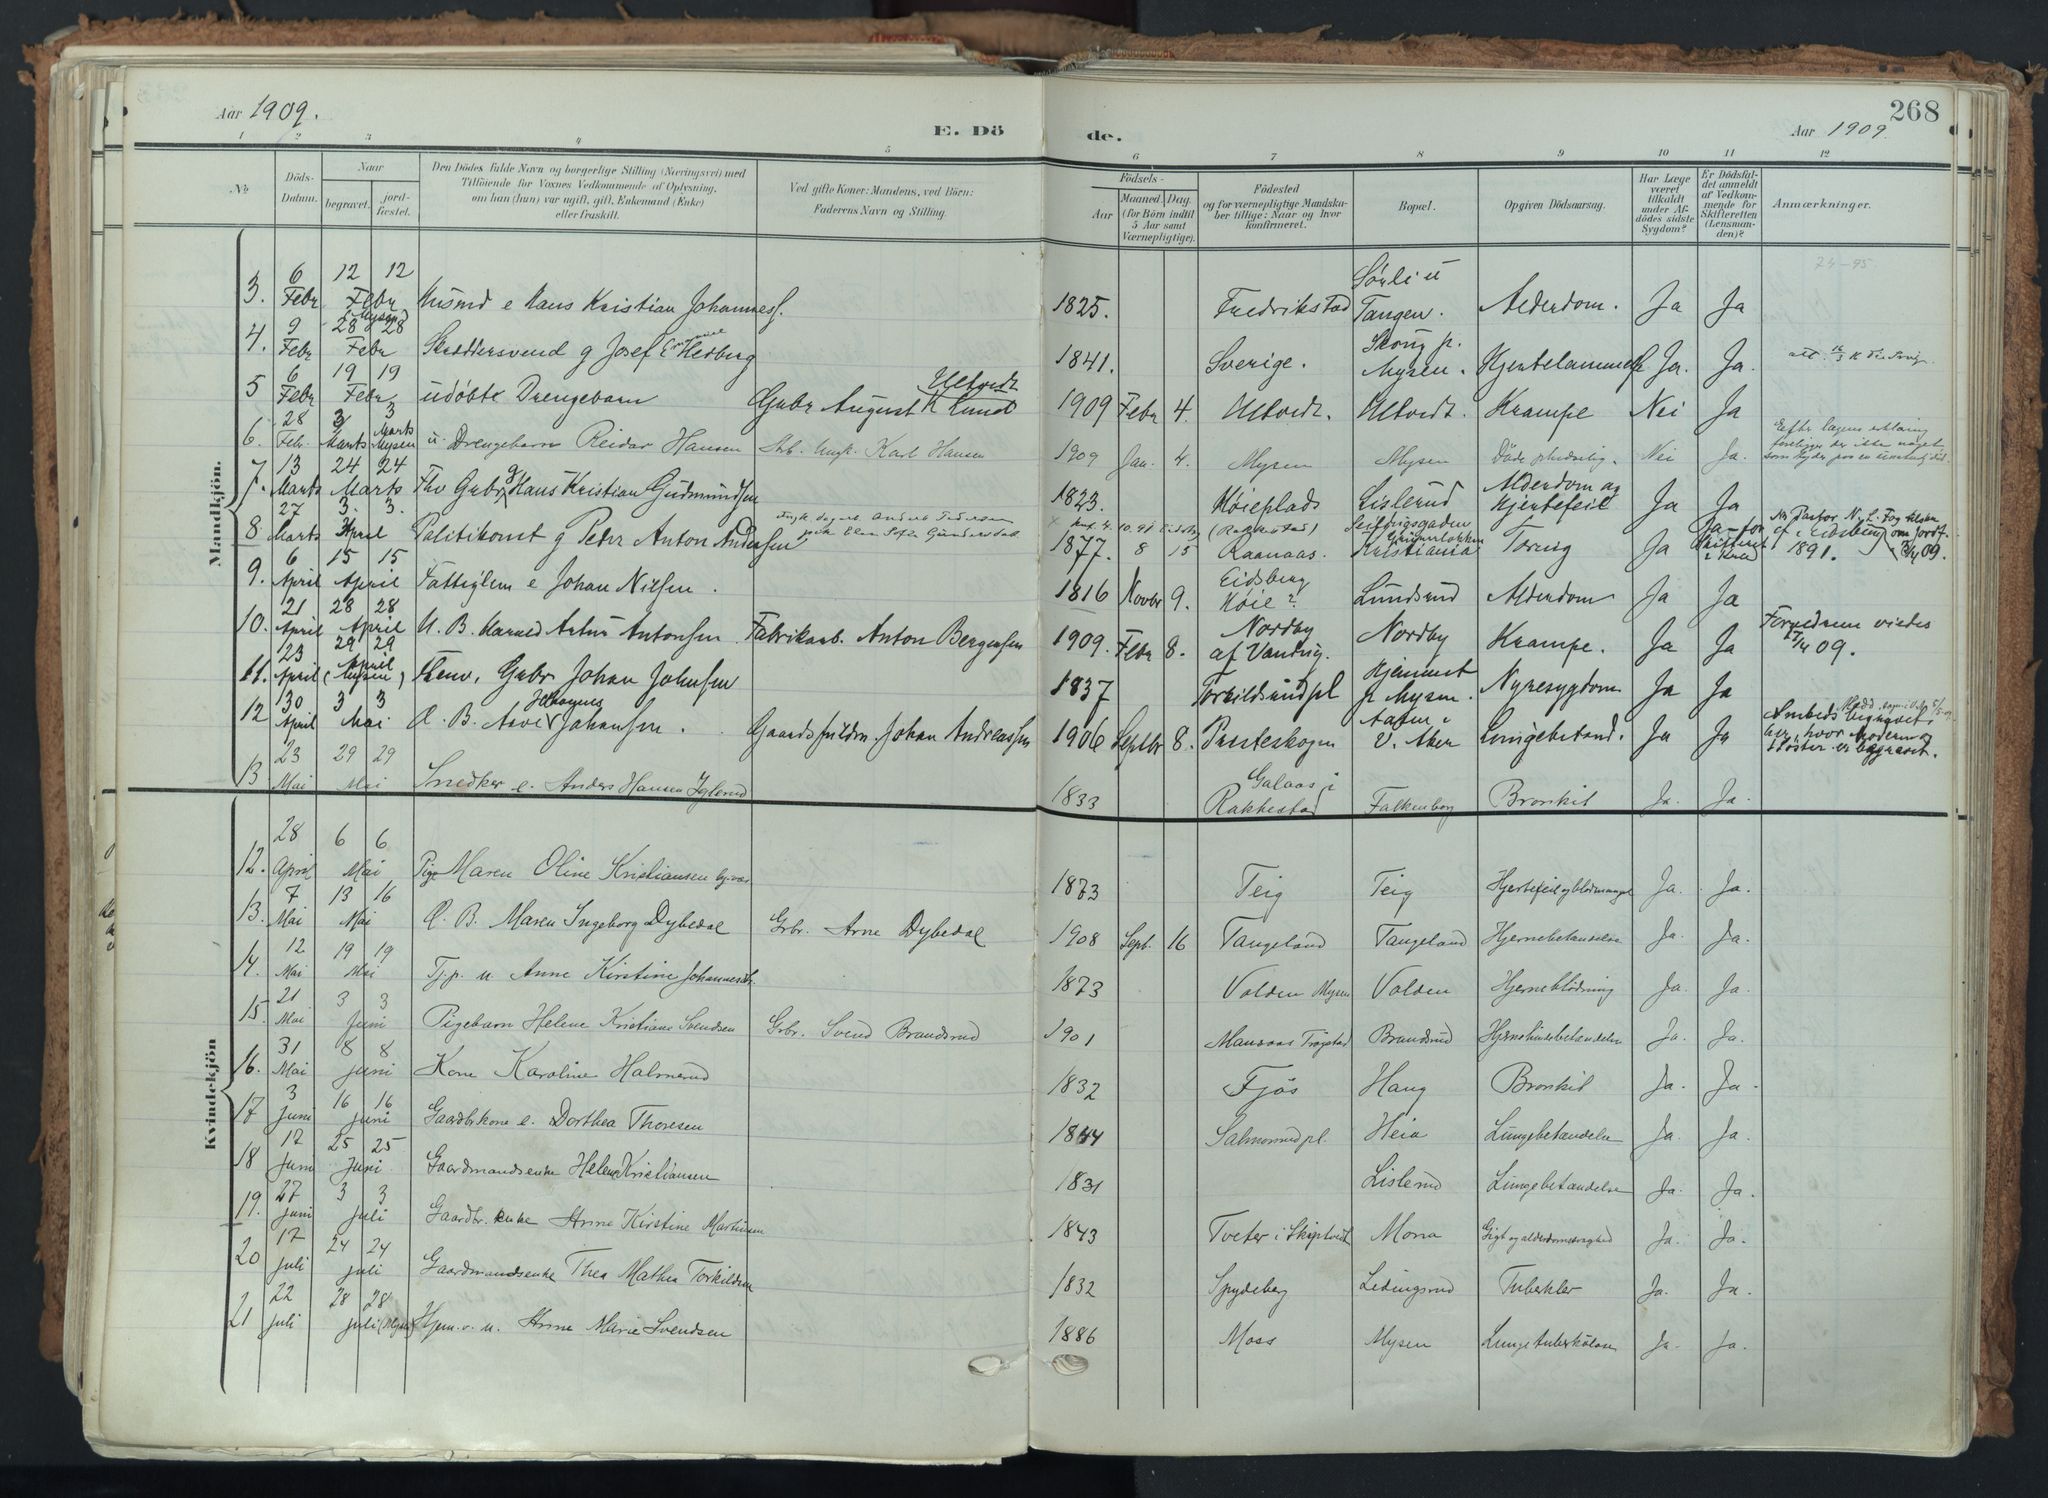 268
Aar 1909.
E. Dö de.
Aar 1909.
1 2 3 4 5 6 7 8 9 10 11 12
No
Döds-Datum.
Naar
begravet.
jord-fæstet.
Den Dödes fulde Navn og borgerlige Stilling (Næringsvei) med
Tilföiende for Voxnes Vedkommende af Oplysning,
om han (hun) var ugift, gift, Enkemand (Enke)
eller fraskilt.
Ved gifte Koner: Mandens, ved Börn:
Faderens Navn og Stilling.
Födsels-
Aar
Maaned. Dag.
(for Börn indtil
5 Aar samt
Værnepligtige).
Födested
og for værnepligtige Mandska-
ber tillige: Naar og hvor
konfirmeret.
Bopæl.
Opgiven Dödsaarsag.
Har Læge
været
tilkaldt
under Af-
dödes sidste
Sygdom?
Er Dödsfal-
det anmeldt
af Vedkom-
mende for
Skifteretten
(Lensman-
den)?
Anmærkninger.
Mandkjön.
74-95
3. 6 Febr 12 12 Febr Husmd e Hans Kristian Johanness. 1825. Fredrikstad Sörli u Tangen. Alderdom. Ja Ja
4. 9 Febr 28 28 Febr (Mysen) Skræddersvend g Josef Hedberg 1841. Sverige. Mysen. Ja. Ja.
5 6 Febr 19 19 Febr udöbt Drengebarn Gbr August K Lund Ultvedt 1909 Febr 4. Ultvedt. Ultvedt. Krampe Nei Ja
6. 28 Feb. 3 Marts 3 Marts Mysen u. Drengebarn Reidar Hansen Arb. Ungk. Karl Hansen 1909 Jan. 4. Mysen Mysen Döde pludselig. Nei Ja. Efter lægens erklæring foreligger der ikke noget som tyder paa en unaturlig död.
7. 13 Marts 24 24 Marts Fhv Gbr g Hans Kristian Gudmundsen 1823. Höieplads Lislerud Alderdom og Hjertefeil Ja Ja
8 27 Marts 3. 3. April Politikonst g Petter Anton Andersen 1877. 8 15 (Rakkestad) Raanaas. Kristiania Tæring Ja 1891.
9. 6 April 15 15 April Fattiglem e Johan Nilsen. 1816 Novbr 9. Eidsberg Höie? Lundsrud Alderdom Ja Ja
10. 21 April 28 28 April U. B. Harald Artur Antonsen Fabrikarb. Anton Bergersen 1909. Febr 8. Nordby af Vandug. Nordby Krampe. Ja Ja Forældrene viedes 17/4 09.
11. 23 April 29 29 April (Mysen) Fhenv. Gbr Johan Johnsen 1837 Torkildsrudpl Hjemmet p Mysen. Nyresygdom Ja Ja
12 30 April 3 3 Mai Æ. B. Arve Johannes Johansen. Gaardsfuldm. Johan Andreassen 1906 Septbr 8. Presteskogen V. Aker Lungebetænd. Ja Ja
13. 23 Mai 29 29 Mai Snedker e. Anders Hansen Iglerud 1833 Galaas i Rakkestad Falkenborg Bronkit Ja. Ja.
Kvindekjön
12. 28 April 6 6 Mai Pige Maren Oline Kristiansen 1873 Teig Teig Hjertefeil og blodmangel Ja. Ja.
13. 7 Mai 13 16 Mai Æ. B. Maren Ingeborg Dybedal Gbr. Arne Dybedal 1908 Sept. 16 Tangeland Tangeland Hjernebetændelse Ja. Ja.
14. 12 Mai 19 19 Mai Tj.p. u. Anne Kirstine Johannesdtr. 1873 Volden Mysen Volden Hjerneblödning Ja. Ja.
15. 21 Mai 3 3 Juni Pigebarn Helene Kristiane Svendsen Gbr. Svend Brandsrud 1901 Mansaas Trögstad Brandsrud Hjernehindebetændelse Ja. Ja.
16. 31 Mai 8 8 Juni Kone Karoline Halmerud 1832 Fjös Haug Bronkit Ja. Ja.
17 3 Juni 16 16 Juni Gaardbrkone e. Dorthea Thoresen 1844 Salmonrudpl. Heia Lungebetændelse Ja. Ja.
18 17 Juni 25 25 Juni Gaardmandsenke Helene Kristiansen 1831 Lislerud Lungebetændelse Ja. Ja.
19. 27 Juni 3 3 Juli Gaardbr. enke Anne Kirstine Martinsen 1843 Tveter i Skiptvedt Mona Gigt og alderdomssvaghed Ja. Ja.
20 17 Juli 24 24 Juli Gaardmandsenke Thea Mathea Torkildsen 1832 Spydeberg Ledingsrud Tuberkler Ja. Ja.
21 22 Juli 28 28 Juli (Mysen) Hjem.v. u. Anne Marie Svendsen 1886 Moss Mysen Lungetuberkulose Ja. Ja.